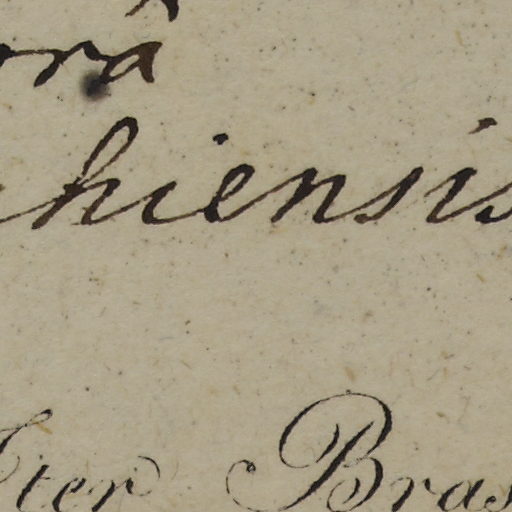 orâ
hiensis
Iter Bras